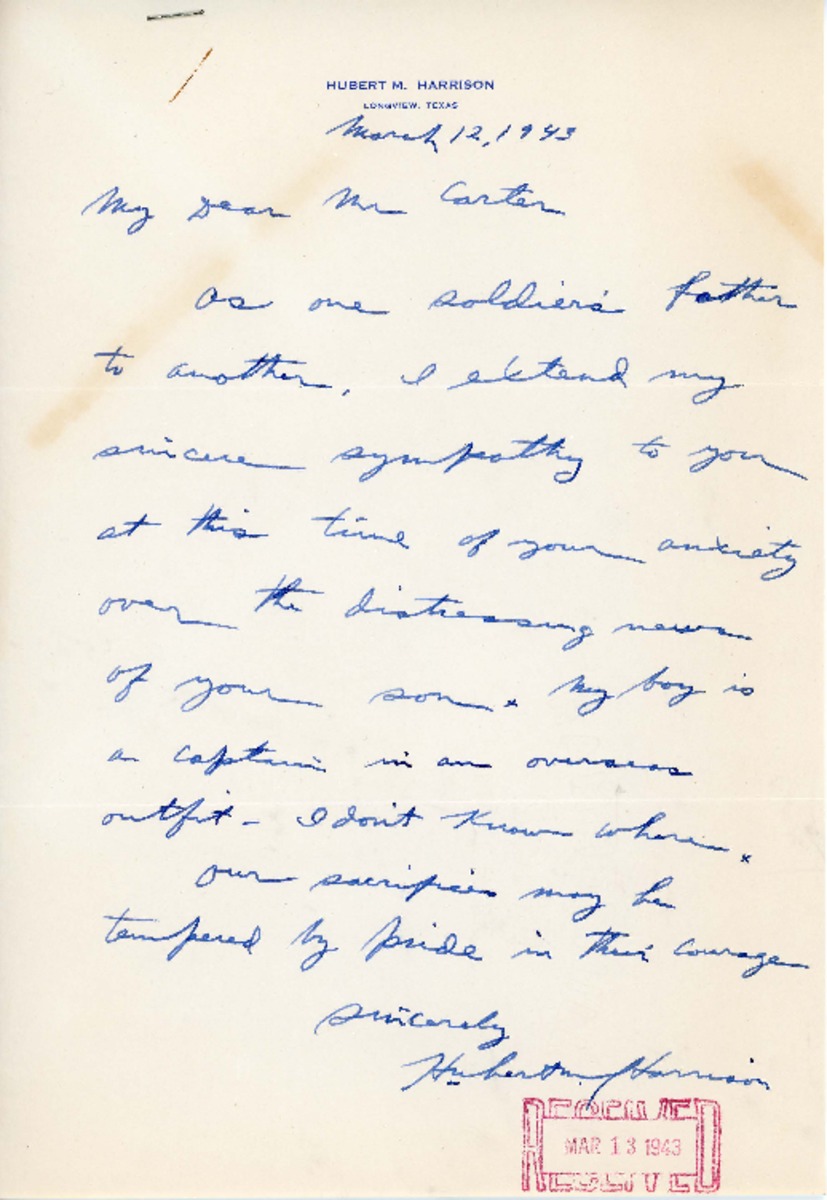 HUBERT M. HARRISON
LONGVIEW, TEXAS
March 12, 1943
My Dear Mr Carter
As one soldier's father
to another, I extend my
sincere sympathy to you
at this time of your anxiety
over the distressing news
of your son. My boy is
a captain in an overseas
outfit - I don't know where.
Our sacrifices may be
tempered by pride in their courage
Sincerely
Hubert M. Harrison
RECEIVED
MAR 13 1943
RECEIVED